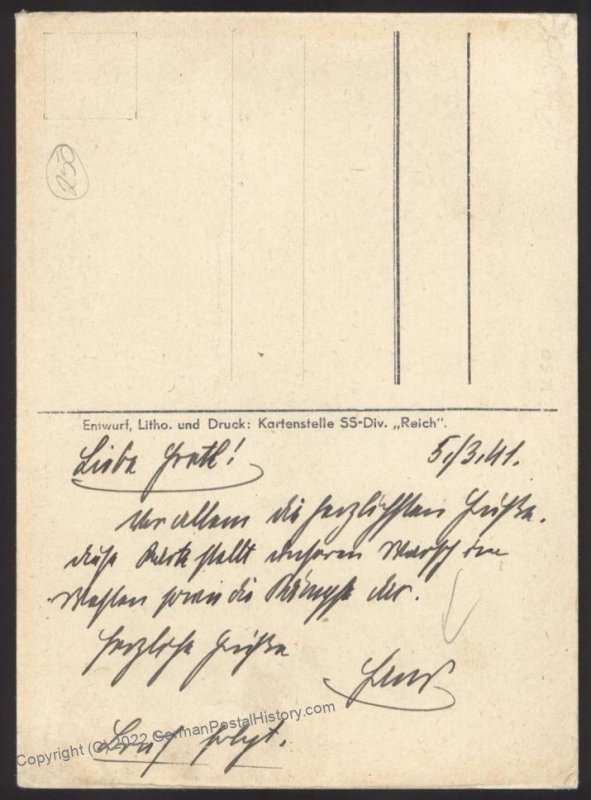 250
Entwurf, Litho. und Druck: Kartenstelle SS-Div. „Reich".
Liebe Gretl! 5./3.41.
Vor allem die herzlichsten Grüße.
diese Karte stellt unseren Marsch im
Westen sowie die Kämpfe dar.
Herzliche Grüße
Hans
Brief folgt.
Copyright (C) 2022 GermanPostalHistory.com